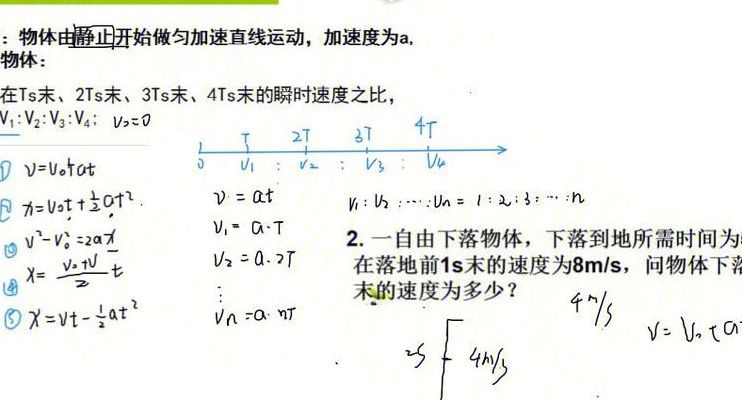 ：物体由静止开始做匀加速直线运动，加速度为a,
物体：
在Ts末、2Ts末、3Ts末、4Ts末的瞬时速度之比，
V₁:V₂:V₃:V₄; V₀=0
T 2T 3T 4T
0 V₁ : V₂ : V₃ : V₄
① v=v₀+at
② x=v₀t+½at²
③ v²-v₀²=2ax
④ x=(v₀+v)/2 t
⑤ x=vt-½at²
v=at
V₁=a·T
V₂=a·2T
⋮
Vn=a·nT
V₁:V₂:⋯:Vn=1:2:3:⋯:n
2. 一自由下落物体，下落到地所需时间为
在落地前1s末的速度为8m/s，问物体下落
末的速度为多少？
4m/s
2s 4m/s
V=V₀+a